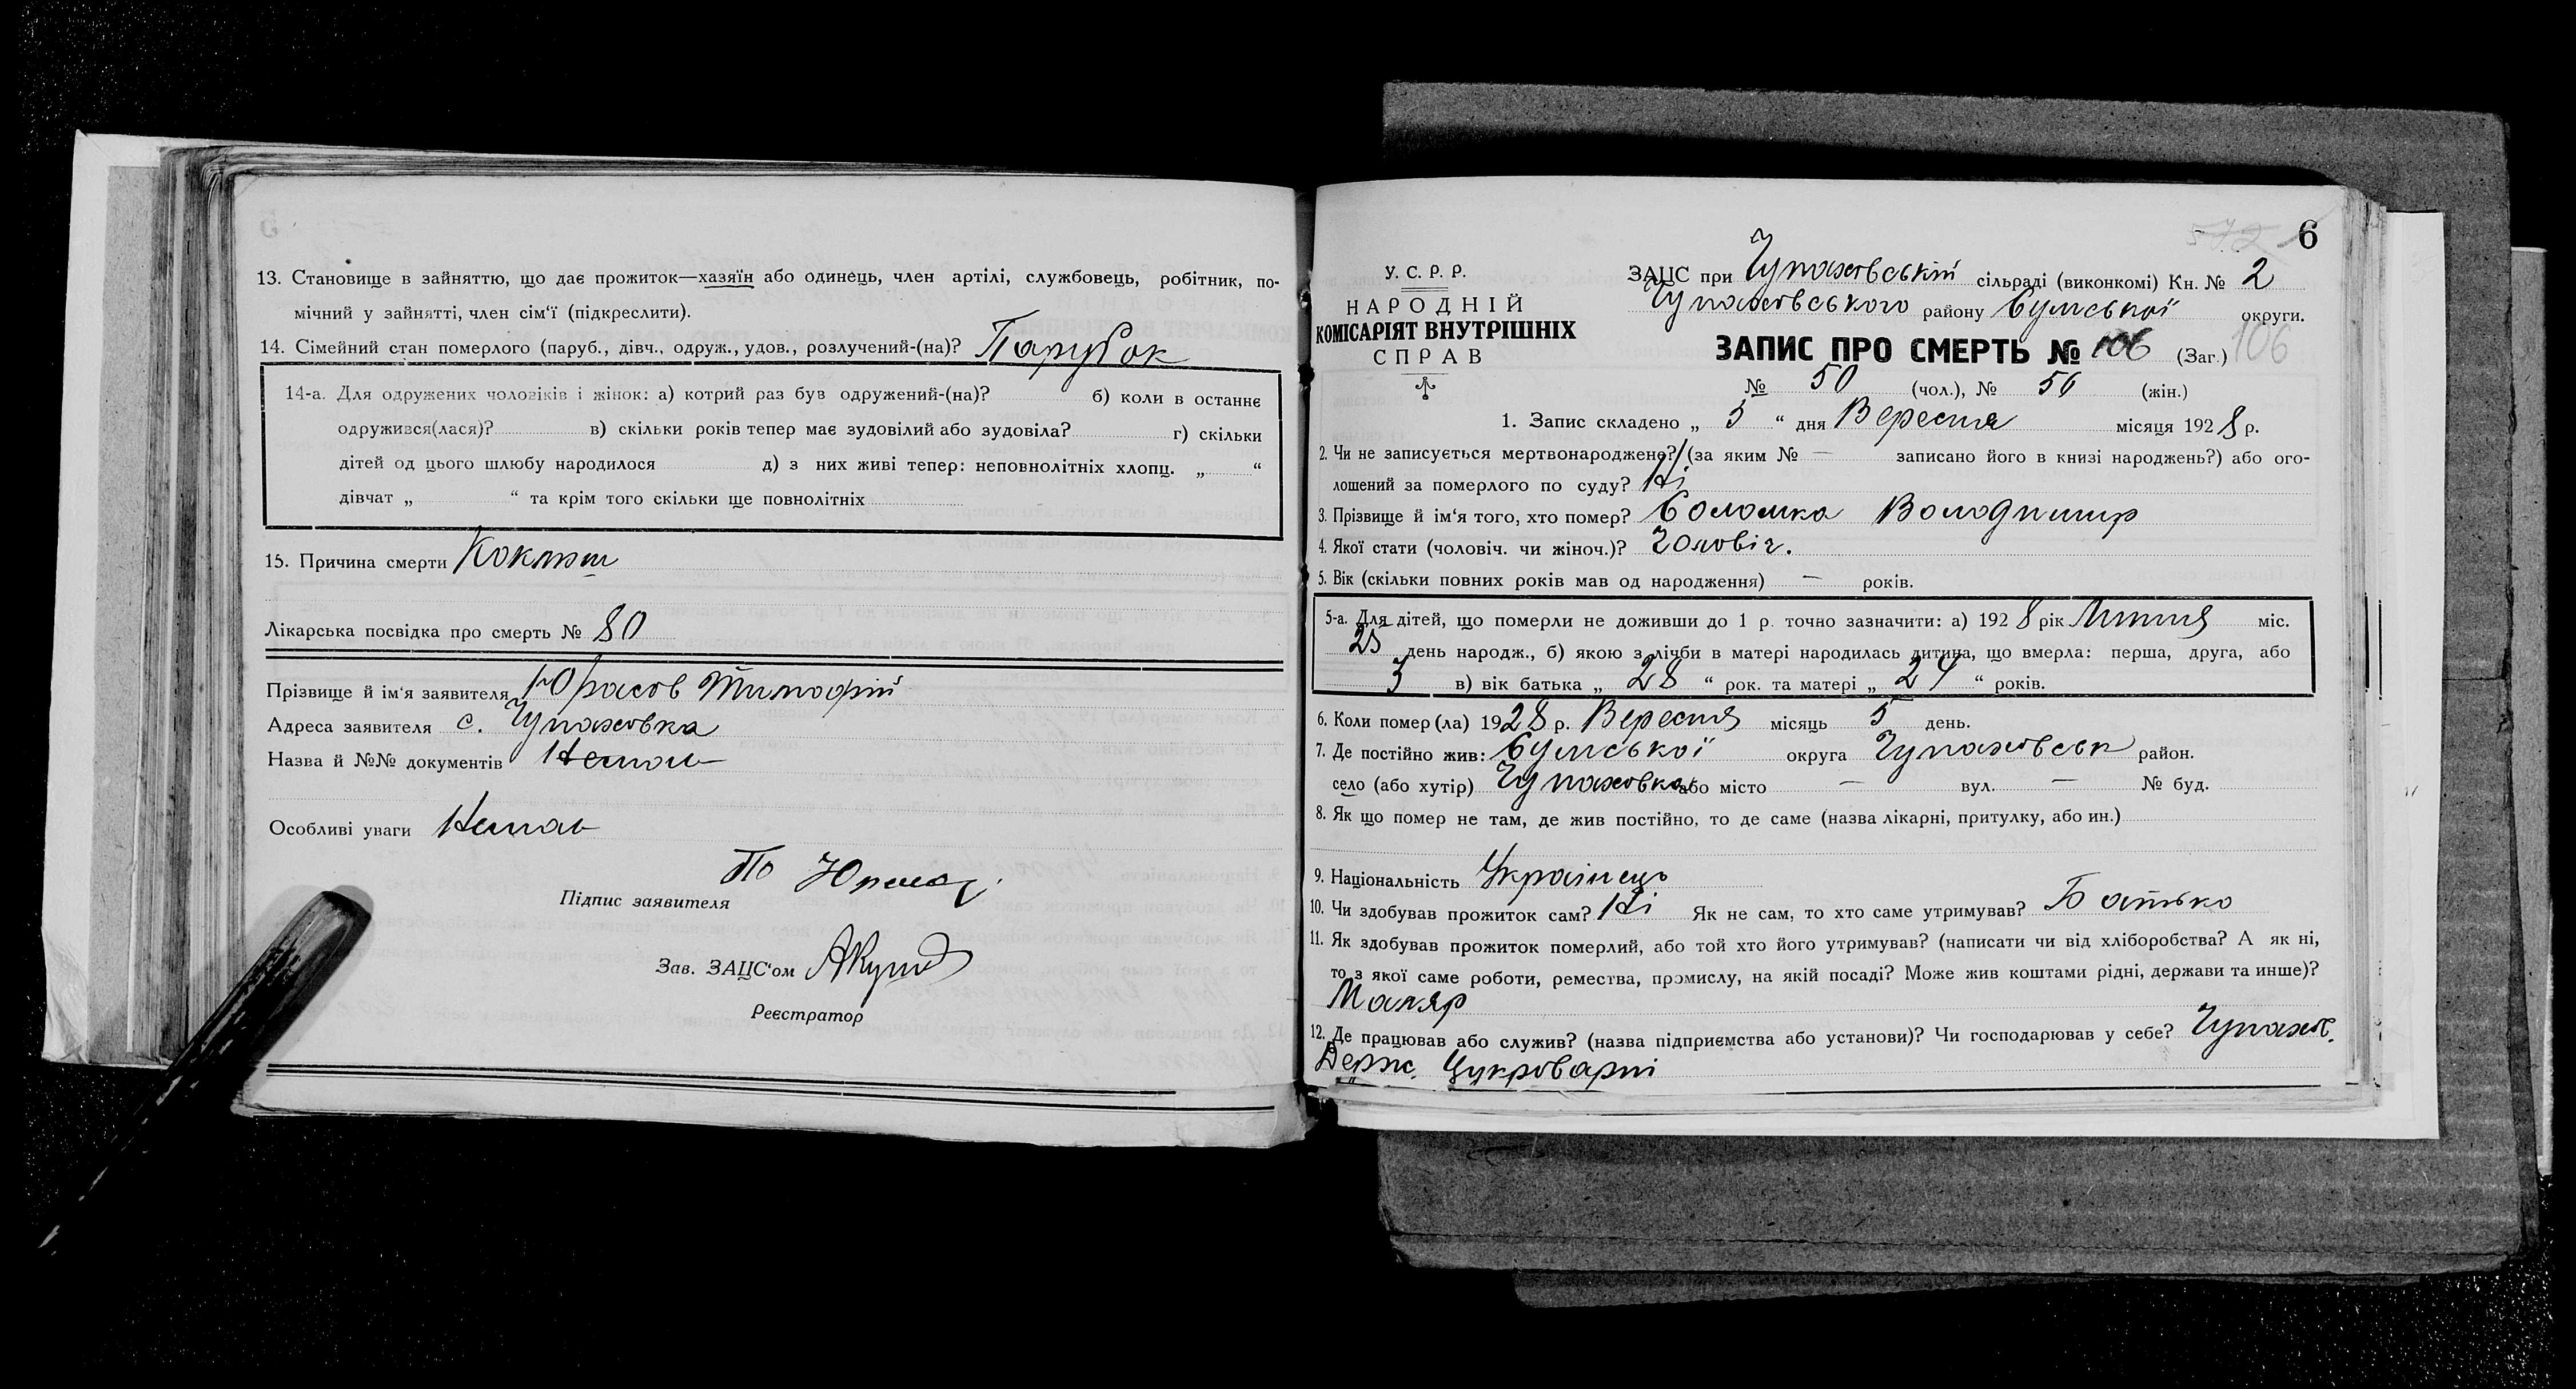 13. Становище в зайняттю, що дає прожиток—хазяїн або одинець, член артілі, службовець, робітник, по-
мічний у зайнятті, член сім'ї (підкреслити).
14. Сімейний стан померлого (паруб., дівч., одруж., удов., розлучений-(на)? Парубок
14-а. Для одружених чоловіків і жінок: а) котрий раз був одружений-(на)? б) коли в останнє
одружився(лася)? в) скільки років тепер має зудовілий або зудовіла? г) скільки
дітей од цього шлюбу народилося д) з них живі тепер: неповнолітніх хлопц. „ “
дівчат „ “ та крім того скільки ще повнолітніх
15. Причина смерти Коклюш
Лікарська посвідка про смерть № 80
Прізвище й ім'я заявителя Юрасов Тимофій
Адреса заявителя с. Чупаховка
Назва й №№ документів Немає
Особливі уваги Немає
Підпис заявителя
Зав. ЗАЦС'ом
Реєстратор
6
У. С. Р. Р.
НАРОДНІЙ
КОМІСАРІЯТ ВНУТРІШНІХ
СПРАВ
ЗАЦС при Чупаховській сільраді (виконкомі) Кн. № 2
Чупаховського району Сумської округи.
ЗАПИС ПРО СМЕРТЬ № 106 (Заг.) 106
№ 50 (чол.), № 56 (жін.)
1. Запис складено „ 5 “ дня Вересня місяця 1928 р.
2. Чи не записується мертвонароджене? (за яким № — записано його в книзі народжень?) або ого-
лошений за померлого по суду? Ні
3. Прізвище й ім'я того, хто помер? Соломка Володимир
4. Якої стати (чоловіч. чи жіноч.)? Чоловіч.
5. Вік (скільки повних років мав од народження) — років.
5-а. Для дітей, що померли не доживши до 1 р. точно зазначити: а) 1928 рік Липня міс.
25 день народж., б) якою з лічби в матері народилась дитина, що вмерла: перша, друга, або
3 в) вік батька „ 28 “ рок. та матері „ 24 “ років.
6. Коли помер(ла) 1928 р. Вересня місяць 5 день.
7. Де постійно жив: Сумської округа Чупаховськ район.
село (або хутір) Чупаховка або місто — вул. — № буд.
8. Як що помер не там, де жив постійно, то де саме (назва лікарні, притулку, або ин.)
9. Національність Українець
10. Чи здобував прожиток сам? Ні Як не сам, то хто саме утримував? Батько
11. Як здобував прожиток померлий, або той хто його утримував? (написати чи від хліборобства? А як ні,
то з якої саме роботи, ремества, промислу, на якій посаді? Може жив коштами рідні, держави та инше)?
Маляр
12. Де працював або служив? (назва підприємства або установи)? Чи господарював у себе? Чупахов.
Держ. Цукроварні